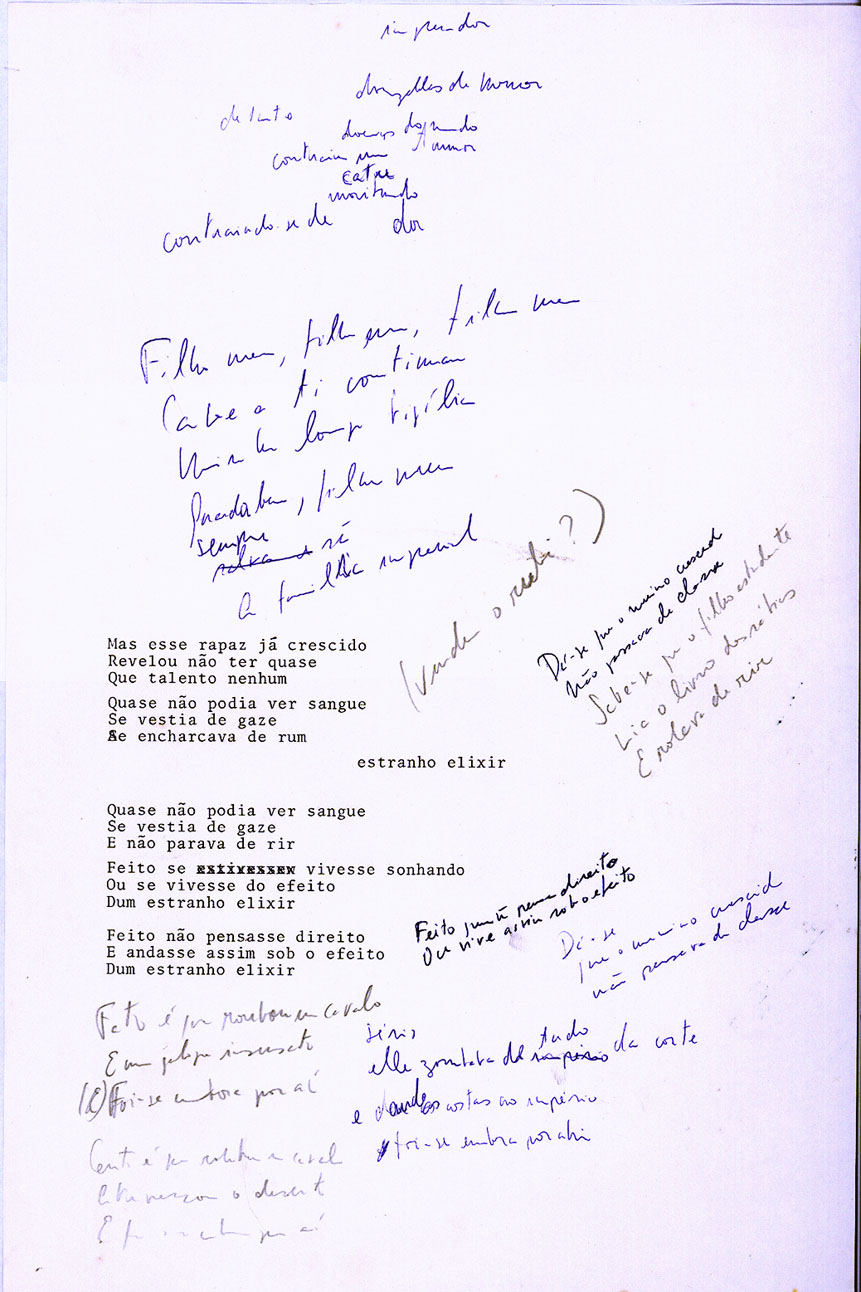 imperador
donzellas de honor
de tanto
doenças do mundo
contraiu um tumor
catre
moribundo
contraiado se de dor
Filho meu, filho meu, filho meu
Cabe a ti continuar
Minha longa vigília
Parabéns, filho meu
sempre
A família imperial
(vende o rubi?)
Mas esse rapaz já crescido
Revelou não ter quase
Que talento nenhum
Quase não podia ver sangue
Se vestia de gaze
Se encharcava de rum
estranho elixir
Diz-se que o menino crescid
Não passava de classe
Sabe-se que o filho estudante
Lia o livro das
E rolava de rir
Quase não podia ver sangue
Se vestia de gaze
E não parava de rir
Feito se estivessev vivesse sonhando
Ou se vivesse do efeito
Dum estranho elixir
Feito não pensasse direito
E andasse assim sob o efeito
Dum estranho elixir
Feito quem pensa direito
Ou vive assim sob o efeito
Diz-se
que o menino crescid
não passava de classe
Fato é que roubou um cavalo
E num galope insensato
(E) Foi-se embora por aí
elle zombava de tudo da corte
e dando as costas ao império
foi-se embora por ahi
Certo é que
Atravessou o desert
E por aí